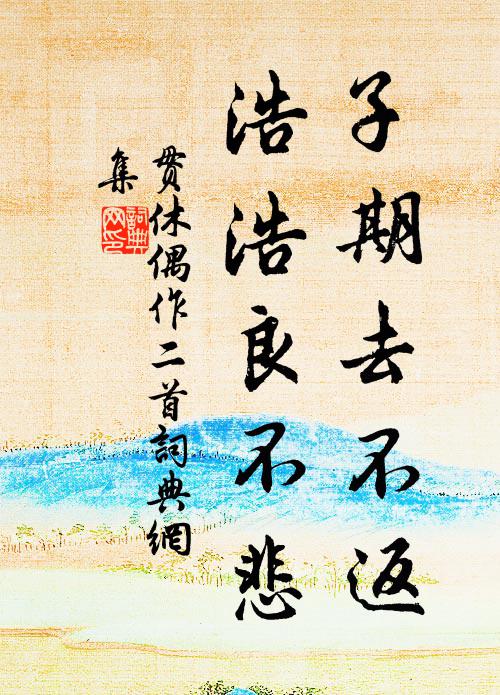 子期去不返
浩浩良不悲
贯休偶作二首詞典網
集
詞典
网